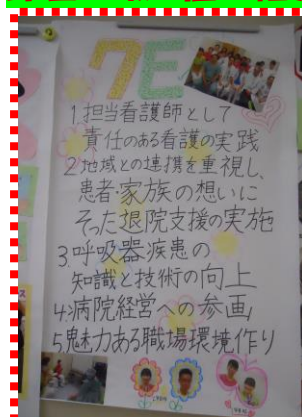 7E
1.担当看護師として
責任のある看護の実践
2.地域との連携を重視し、
患者・家族の想いに
そった退院支援の実施
3.呼吸器疾患の
知識と技術の向上
4.病院経営への参画
5.魅力ある職場環境作り